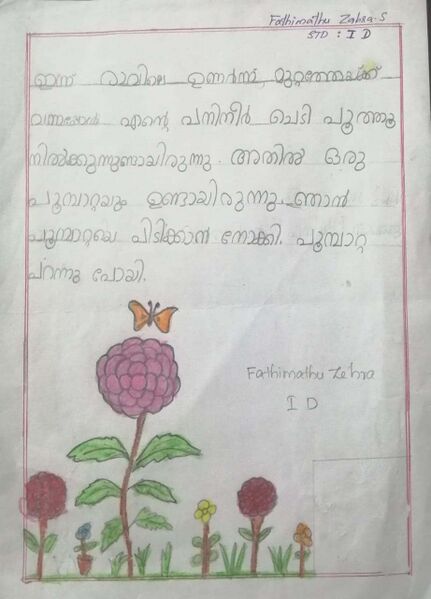 Fathimathu Zahra.S
STD : I D
ഇന്ന് രാവിലെ ഉണർന്ന് മുറ്റത്തേയ്ക്ക്
വന്നപ്പോൾ എന്റെ പനിനീർ ചെടി പൂത്തു
നിൽക്കുന്നുണ്ടായിരുന്നു. അതിൽ ഒരു
പൂമ്പാറ്റയും ഉണ്ടായിരുന്നു. ഞാൻ
പൂമ്പാറ്റയെ പിടിക്കാൻ നോക്കി. പൂമ്പാറ്റ
പറന്നു പോയി.
Fathimathu Zehra
I D